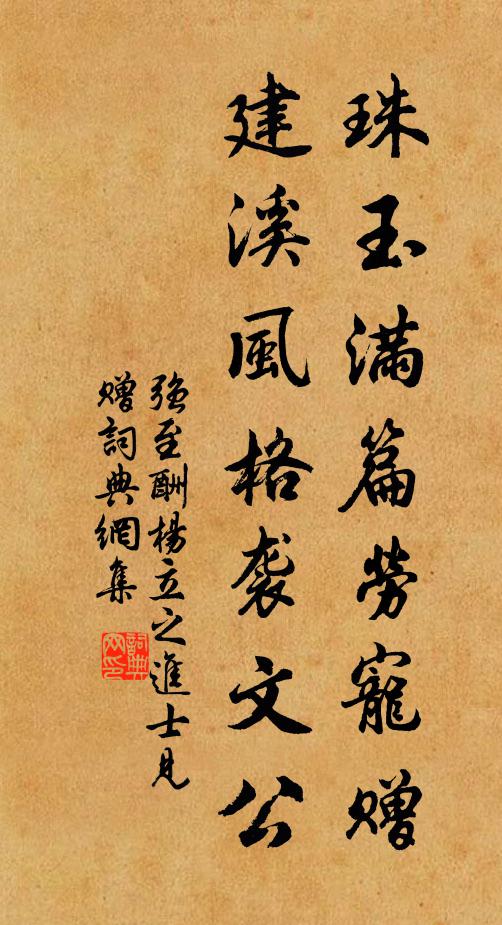 珠玉滿篇勞寵贈
建溪風格袭文公
強至酬楊立之進士見
贈詞典網集
詞典
网印